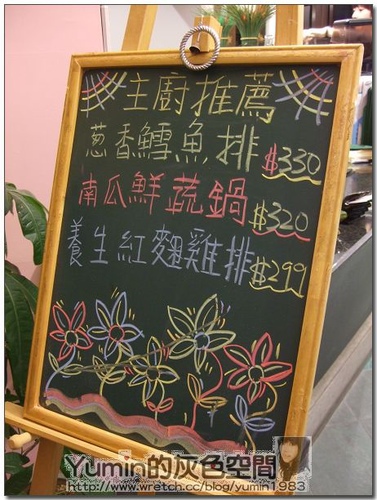 主廚推薦
葱香鱈魚排 $330
南瓜鮮蔬鍋 $320
養生紅麴雞排 $299
Yumin的灰色空間
http://www.wretch.cc/blog/yumin1983